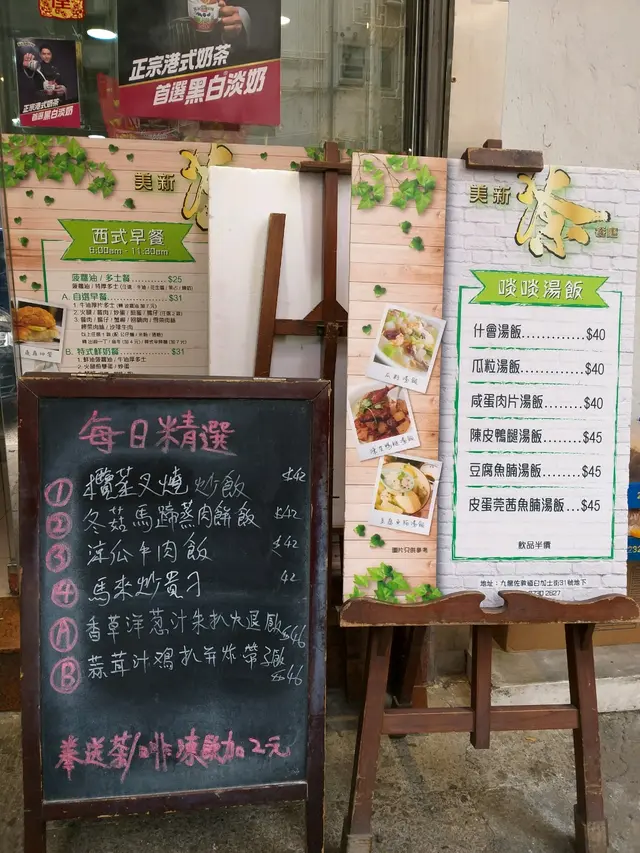 正宗港式奶茶
首選黑白淡奶
正宗港式奶茶
首選黑白淡奶
美新
西式早餐
6:00am - 11:30am
菠蘿油 / 多士餐 $25
A. 自選早餐 $31
B. 特式鮮奶餐 $31
每日精選
① 欖菜叉燒炒飯 $42
② 冬菇馬蹄蒸肉餅飯 $42
③ 涼瓜牛肉飯 $42
④ 馬來炒貴刁 42
Ⓐ 香草洋葱汁朱扒火退飯 $46
Ⓑ 蒜茸汁鸡扒弁炸帶子飯 $46
奉送茶/啡凍飲加2元
美新
茶
餐廳
啖啖湯飯
什會湯飯 $40
瓜粒湯飯 $40
咸蛋肉片湯飯 $40
陳皮鴨腿湯飯 $45
豆腐魚腩湯飯 $45
皮蛋芫茜魚腩湯飯 $45
飲品半價
瓜粒湯飯
陳皮鴨腿湯飯
豆腐魚腩湯飯
圖片只供參考
地址：九龍佐敦道白加士街31號地下
2730 2827